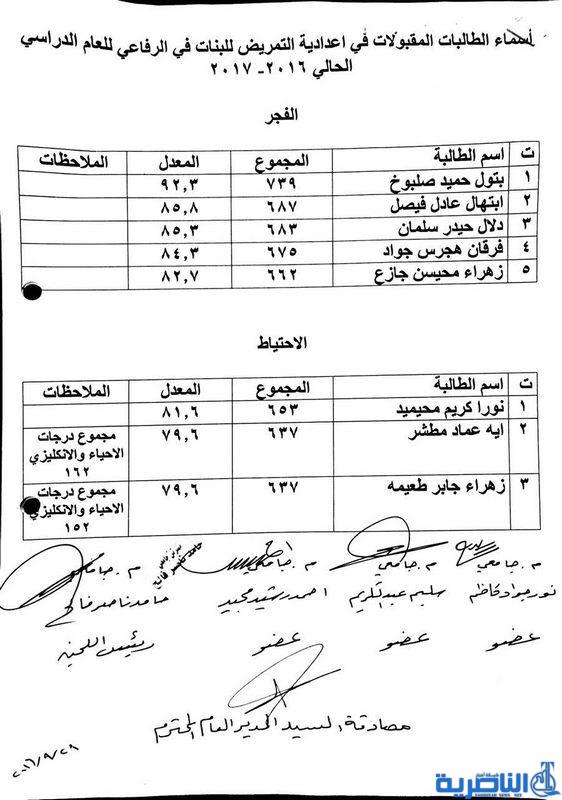 أسماء الطالبات المقبولات في اعدادية التمريض للبنات في الرفاعي للعام الدراسي
الحالي ٢٠١٦- ٢٠١٧
الفجر
ت اسم الطالبة المجموع المعدل الملاحظات
١ بتول حميد صلبوخ ٧٣٩ ٩٢,٣
٢ ابتهال عادل فيصل ٦٨٧ ٨٥,٨
٣ دلال حيدر سلمان ٦٨٣ ٨٥,٣
٤ فرقان هجرس جواد ٦٧٥ ٨٤,٣
٥ زهراء محيسن جازع ٦٦٢ ٨٢,٧
الاحتياط
ت اسم الطالبة المجموع المعدل الملاحظات
١ نورا كريم محيميد ٦٥٣ ٨١,٦
٢ ايه عماد مطشر ٦٣٧ ٧٩,٦ مجموع درجات
الاحياء والانكليزي
١٦٢
٣ زهراء جابر طعيمه ٦٣٧ ٧٩,٦ مجموع درجات
الاحياء والانكليزي
١٥٢
م. جامعي م. جامعي م. جامعي م. جامعي
نور جواد كاظم سليم عبد الكريم احمد رشيد مجيد حامد ناصر فالح
عضو عضو عضو رئيس اللجنة
مصادقة السيد المدير العام المحترم
٢٠١٦/٩/٢٨
شبكة أخبار
الناصرية
NASIRIYAH NEWS NET